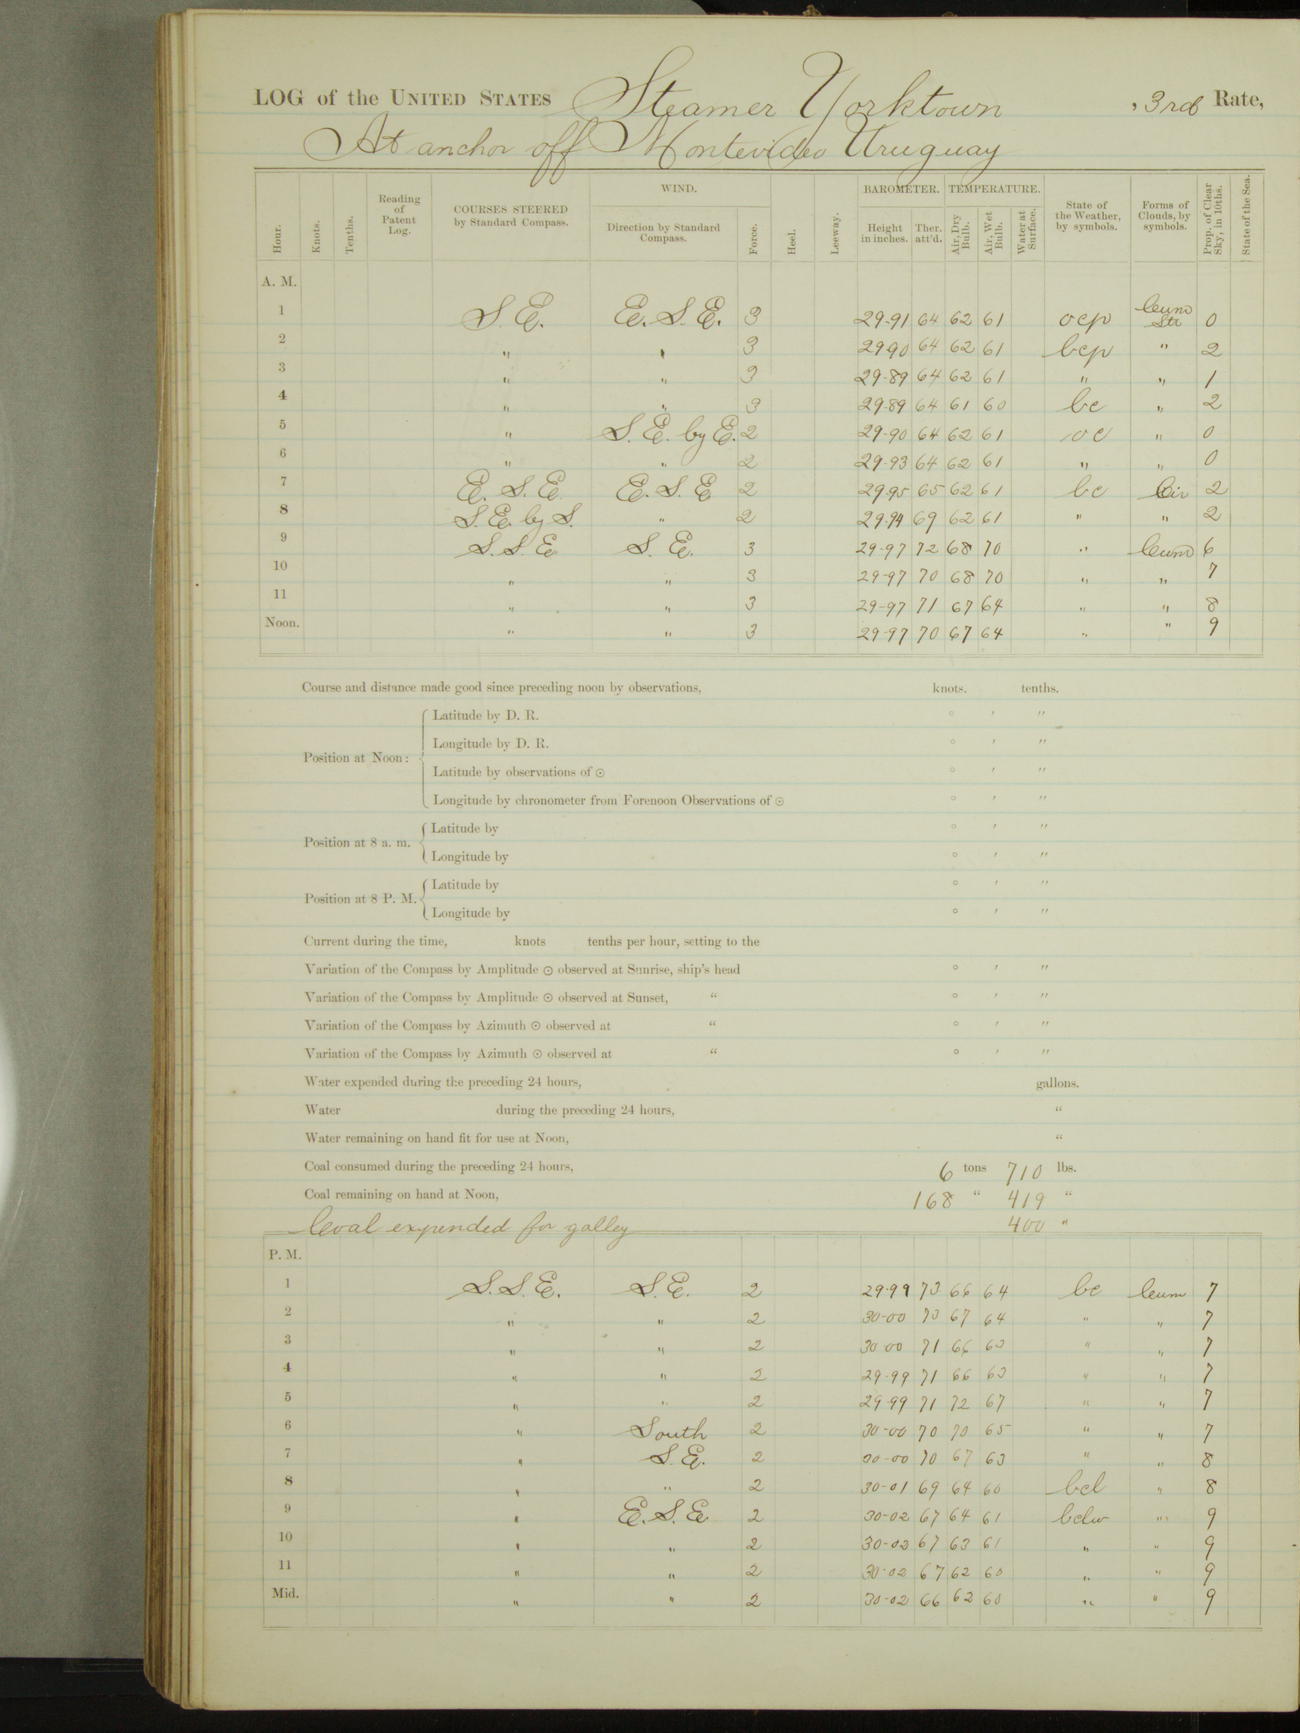 LOG of the UNITED STATES Steamer Yorktown , 3rd Rate,
At anchor off Montevideo Uruguay
WIND. BAROMETER. TEMPERATURE.
Hour. Knots. Tenths. Reading of Patent Log. COURSES STEERED by Standard Compass. Direction by Standard Compass. Force. Heel. Leeway. Height in inches. Ther. att'd. Air, Dry Bulb. Air, Wet Bulb. Water at Surface. State of the Weather, by symbols. Forms of Clouds, by symbols. Prop. of Clear Sky, in 10ths. State of the Sea.
A. M.
1 S. E. E. S. E. 3 29-91 64 62 61 ocp Cum Str 0
2 " " 3 29-90 64 62 61 bcp " 2
3 " " 3 29-89 64 62 61 " " 1
4 " " 3 29-89 64 61 60 bc " 2
5 " S. E. by E. 2 29-90 64 62 61 oc " 0
6 " " 2 29-93 64 62 61 " " 0
7 E. S. E. E. S. E 2 29-95 65 62 61 bc Cir 2
8 S. E. by S. " 2 29-94 69 62 61 " " 2
9 S. S. E S. E. 3 29-97 72 68 70 " Cum 6
10 " " 3 29-97 70 68 70 " " 7
11 " " 3 29-97 71 67 64 " " 8
Noon. " " 3 29-97 70 67 64 " " 9
Course and distance made good since preceding noon by observations, knots. tenths.
Position at Noon: Latitude by D. R. ° ′ ″
Longitude by D. R. ° ′ ″
Latitude by observations of ☉ ° ′ ″
Longitude by chronometer from Forenoon Observations of ☉ ° ′ ″
Position at 8 a. m. Latitude by ° ′ ″
Longitude by ° ′ ″
Position at 8 P. M. Latitude by ° ′ ″
Longitude by ° ′ ″
Current during the time, knots tenths per hour, setting to the
Variation of the Compass by Amplitude ☉ observed at Sunrise, ship's head ° ′ ″
Variation of the Compass by Amplitude ☉ observed at Sunset, " ° ′ ″
Variation of the Compass by Azimuth ☉ observed at " ° ′ ″
Variation of the Compass by Azimuth ☉ observed at " ° ′ ″
Water expended during the preceding 24 hours, gallons.
Water during the preceding 24 hours, "
Water remaining on hand fit for use at Noon, "
Coal consumed during the preceding 24 hours, 6 tons 710 lbs.
Coal remaining on hand at Noon, 168 " 419 "
Coal expended for galley 400 "
P. M.
1 S. S. E. S. E. 2 29-99 73 66 64 bc Cum 7
2 " " 2 30-00 73 67 64 " " 7
3 " " 2 30-00 71 66 63 " " 7
4 " " 2 29-99 71 66 63 " " 7
5 " " 2 29-99 71 72 67 " " 7
6 " South 2 30-00 70 70 65 " " 7
7 " S. E. 2 30-00 70 67 63 " " 8
8 " " 2 30-01 69 64 60 bcl " 8
9 " E. S. E 2 30-02 67 64 61 bclw " 9
10 " " 2 30-02 67 63 61 " " 9
11 " " 2 30-02 67 62 60 " " 9
Mid. " " 2 30-02 66 62 60 " " 9